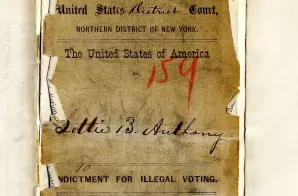 United States District Court,
NORTHERN DISTRICT OF NEW YORK.
The United States of America
vs.
159
Lottie B. Anthony
INDICTMENT FOR ILLEGAL VOTING.